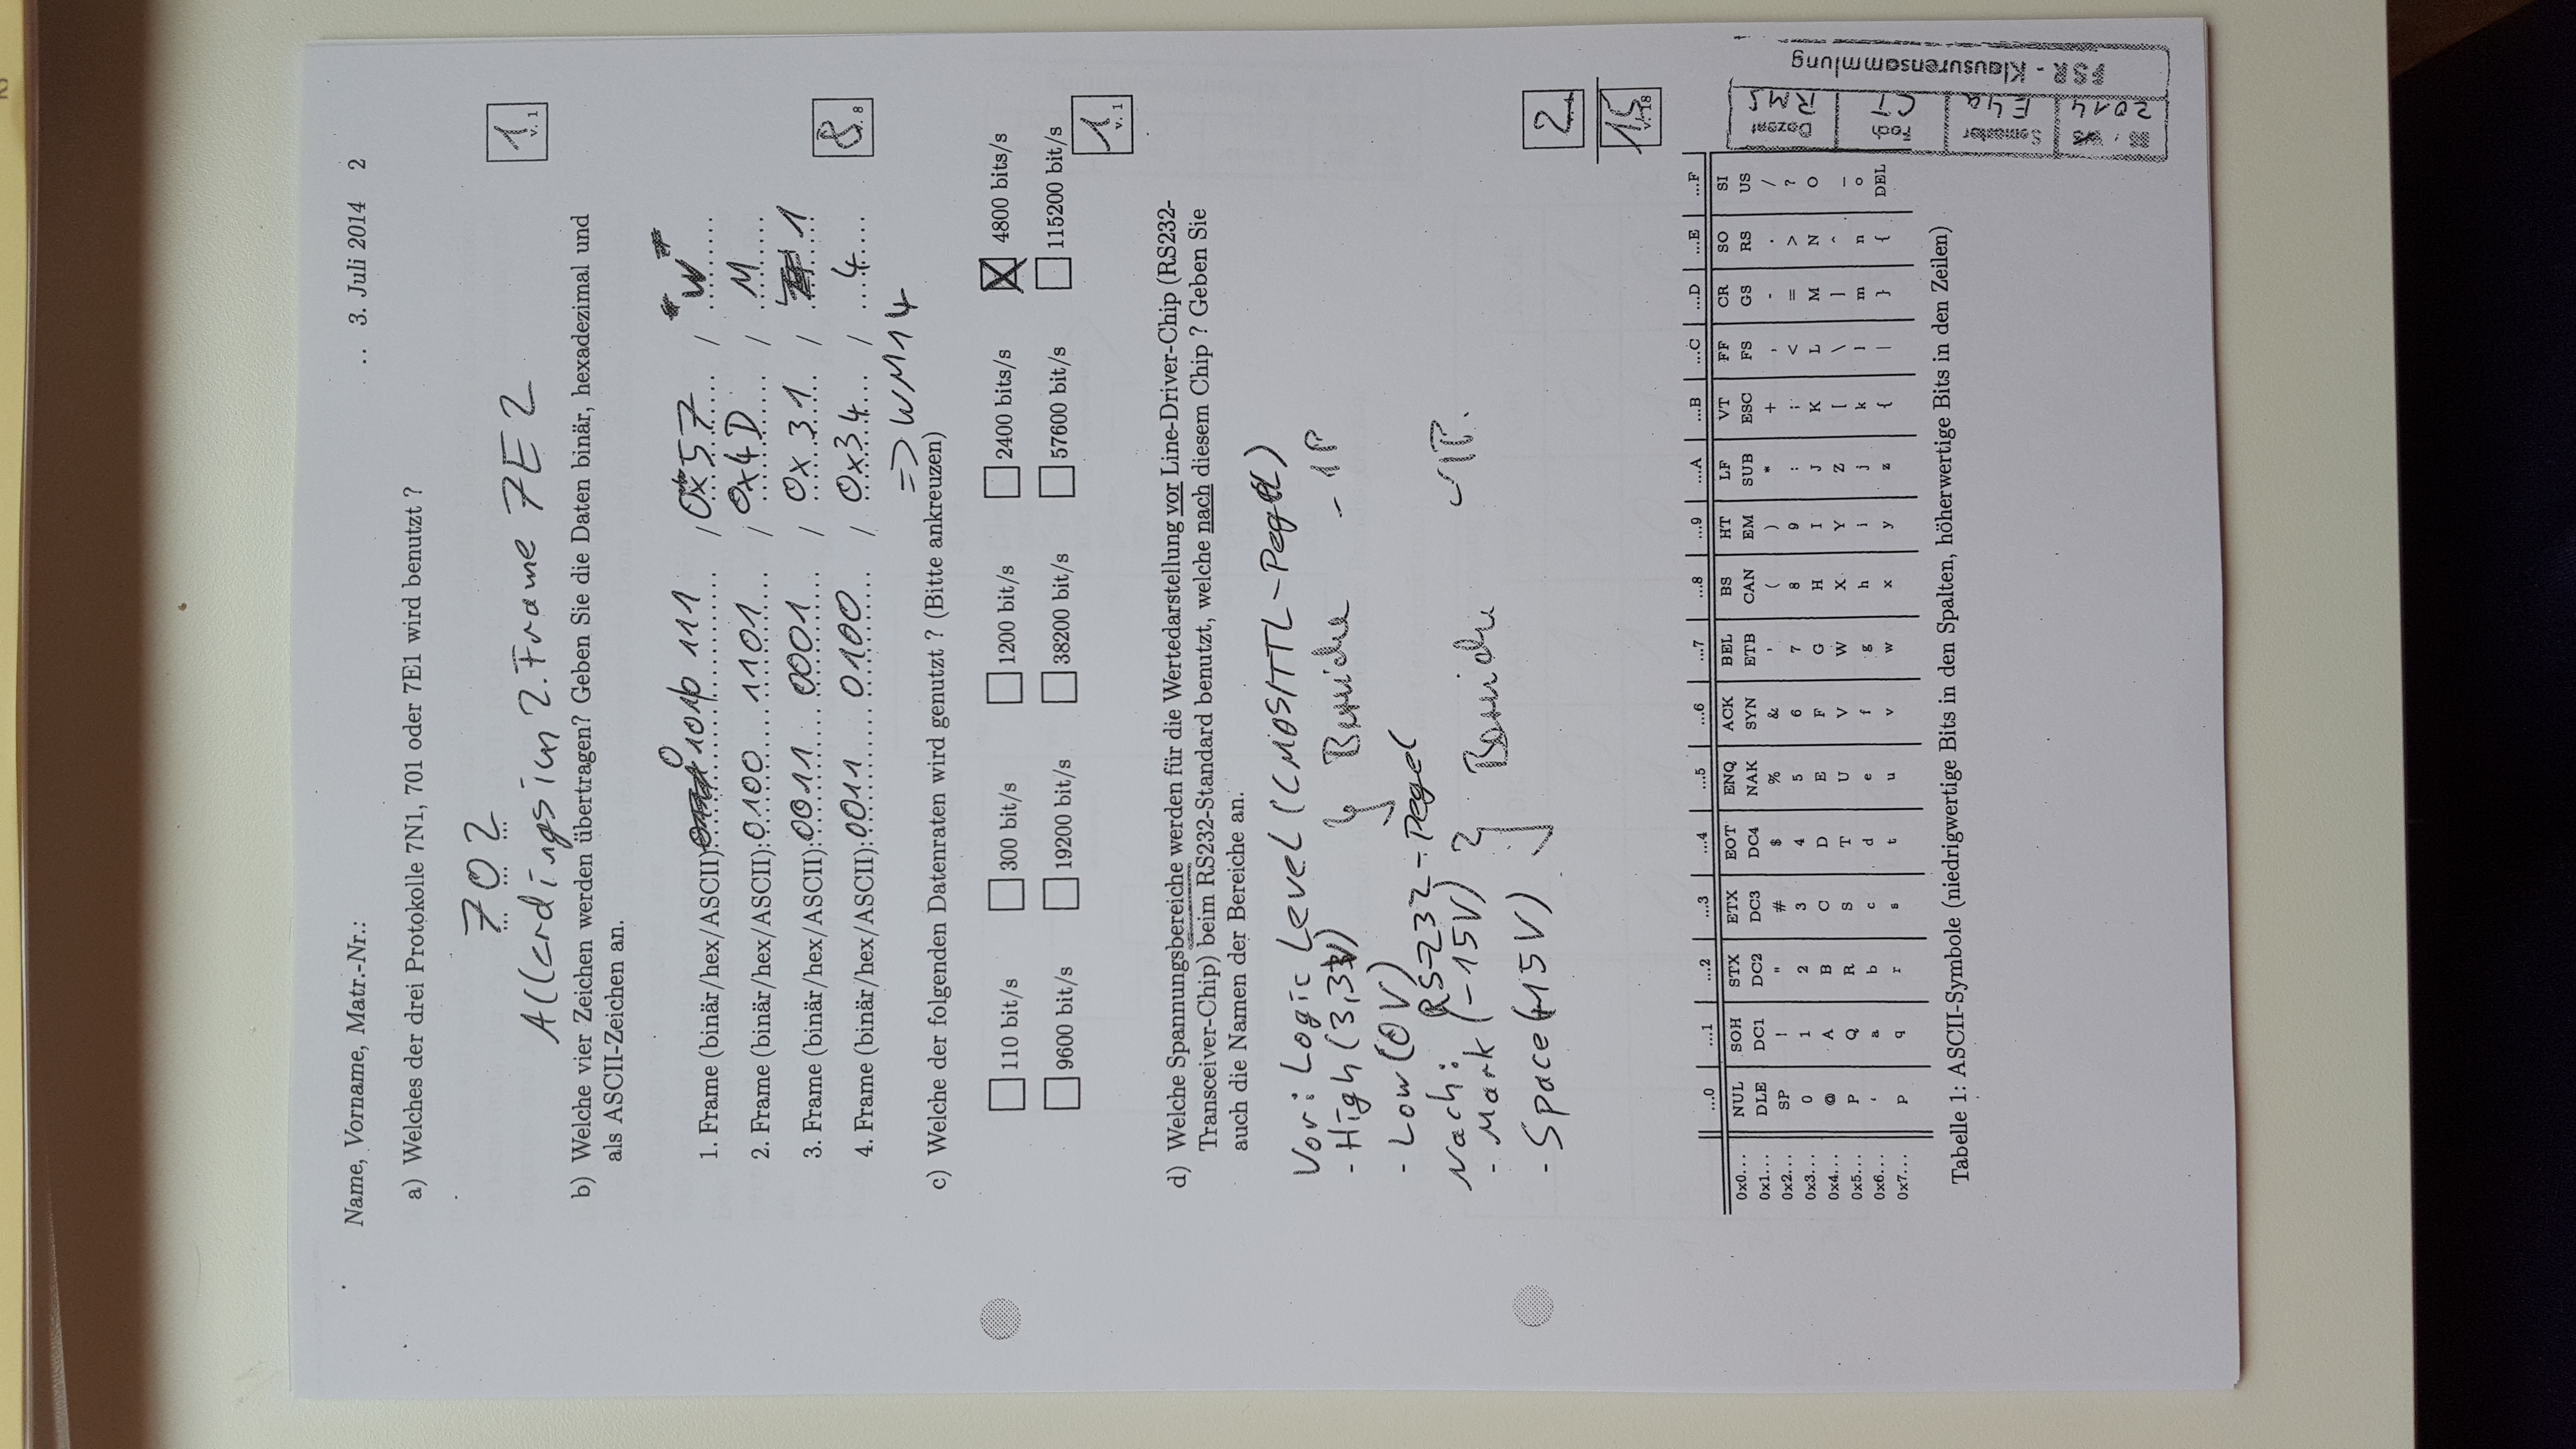 Name, Vorname, Matr.-Nr.: .. 3. Juli 2014 2
a) Welches der drei Protokolle 7N1, 701 oder 7E1 wird benutzt ?
702
Allerdings im 2. Frame 7E2
1 v. 1
b) Welche vier Zeichen werden übertragen? Geben Sie die Daten binär, hexadezimal und
als ASCII-Zeichen an.
1. Frame (binär/hex/ASCII): 0 101 0 111 / 0x57 / "W"
2. Frame (binär/hex/ASCII): 0100 1101 / 0x4D / M
3. Frame (binär/hex/ASCII): 0011 0001 / 0x31 / 1
4. Frame (binär/hex/ASCII): 0011 0100 / 0x34 / 4
8 v. 8
=> WM14
c) Welche der folgenden Datenraten wird genutzt ? (Bitte ankreuzen)
110 bit/s 300 bit/s 1200 bit/s 2400 bits/s X 4800 bits/s
9600 bit/s 19200 bit/s 38200 bit/s 57600 bit/s 115200 bit/s
1 v. 1
d) Welche Spannungsbereiche werden für die Wertedarstellung vor Line-Driver-Chip (RS232-
Transceiver-Chip) beim RS232-Standard benutzt, welche nach diesem Chip ? Geben Sie
auch die Namen der Bereiche an.
Vor: Logic Level (CMOS/TTL-Pegel)
- High (3,3V) } Bereiche - 1P
- Low (0V)
Nach: RS-232-Pegel
- Mark (-15V) } Bereiche - 1P.
- Space (+15V)
2
15 v. 18
...0 ...1 ...2 ...3 ...4 ...5 ...6 ...7 ...8 ...9 ...A ...B ...C ...D ...E ...F
0x0... NUL SOH STX ETX EOT ENQ ACK BEL BS HT LF VT FF CR SO SI
0x1... DLE DC1 DC2 DC3 DC4 NAK SYN ETB CAN EM SUB ESC FS GS RS US
0x2... SP ! " # $ % & ' ( ) * + , - . /
0x3... 0 1 2 3 4 5 6 7 8 9 : ; < = > ?
0x4... @ A B C D E F G H I J K L M N O
0x5... P Q R S T U V W X Y Z [ \ ] ^ _
0x6... ‘ a b c d e f g h i j k l m n o
0x7... p q r s t u v w x y z { | } { DEL
Tabelle 1: ASCII-Symbole (niedrigwertige Bits in den Spalten, höherwertige Bits in den Zeilen)
Semester Fach Dozent
2014 E4a CT RMS
FSR - Klausurensammlung